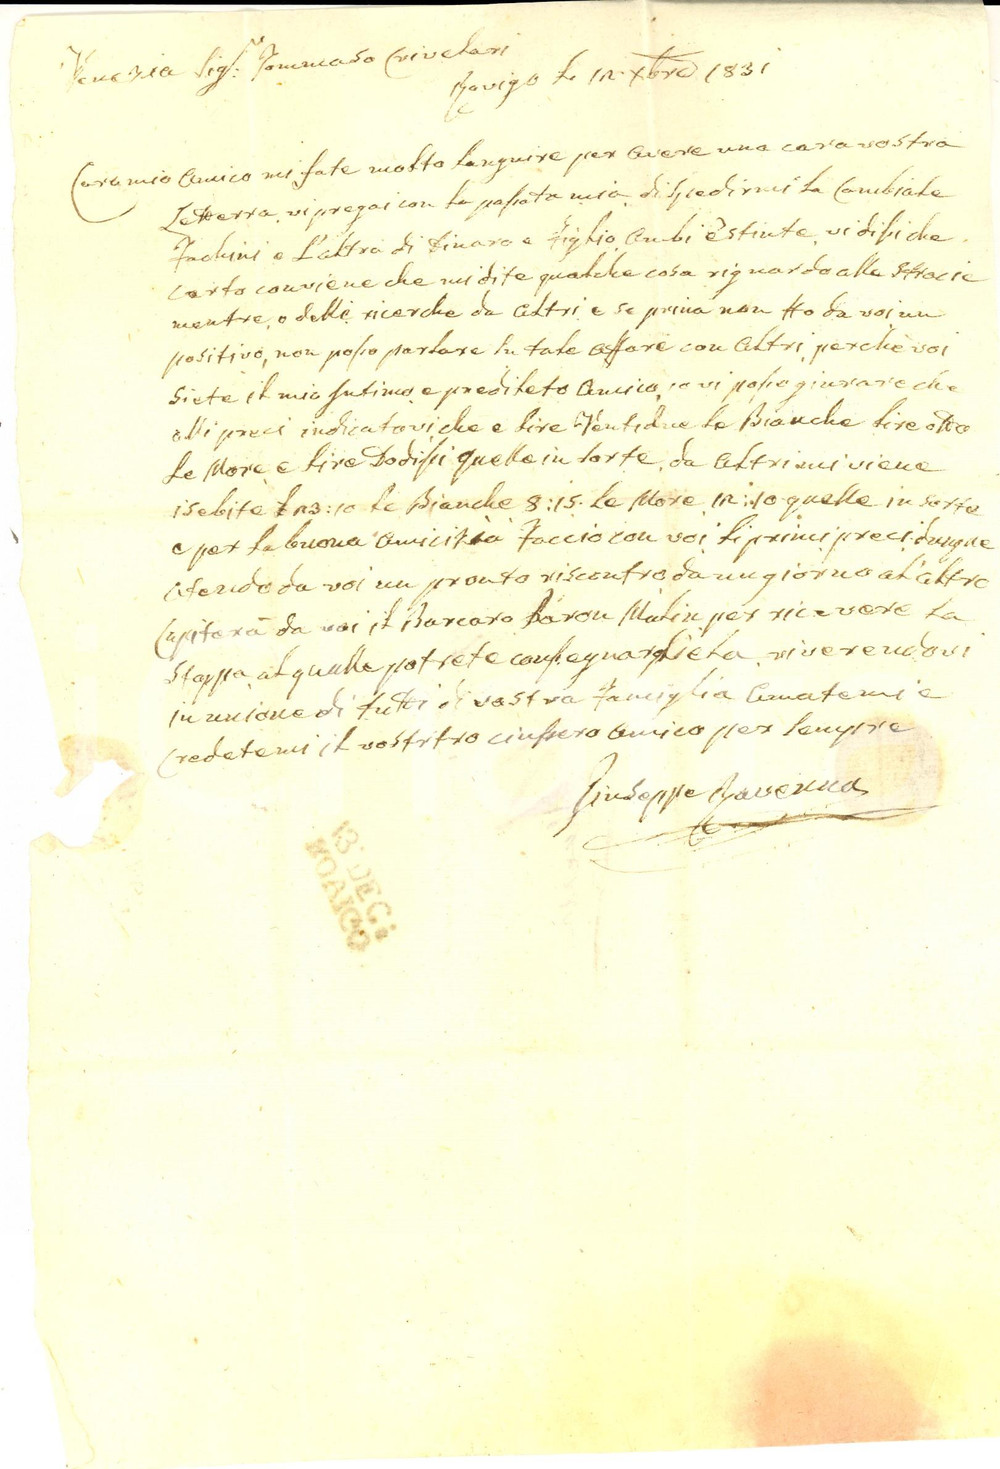 Venezia Sig.r Tommaso Crivelari
Rovigo li 12 Xbre 1831
Caro mio Amico mi fate molto languire per avere una cara vostra
Letterra, vi pregai con la passata mia di spedirmi la Cambiale
Fachini e l'altra di Dinaro e Figlio, Ambi Estinte, vi dissi che
certo conviene che mi dite qualche cosa riguardo alle Stracie
mentre, o delle ricerche da Altri, e se prima non Ho da voi un
positivo, non posso parlare in tale Affare con Altri, perchè voi
siete il mio Intimo, e predileto Amico, io vi posso giurare che
alli preci indicatovi, che e lire Ventidue le Bianche lire otto
le More e lire Dodissi quelle in sorte, da Altri mi viene
isebite L 23:10 le Bianche 8:15 le More 12:10 quelle in sorte
e per la buona Amicizia Faccio con voi li primi preci, dunque
atendo da voi un pronto riscontro, da un giorno al'altro
Capiterà da voi il Barcaro Baron Mulin per ricevere la
Stoppa, al qualle potrete conssegnarglieta, riverendovi
in unione di tutti di vostra Famiglia Amatemi e
Credetemi il vostrtro cinssero Amico per sempre
Giuseppe Ravenna
13 DEC:
ROVIGO